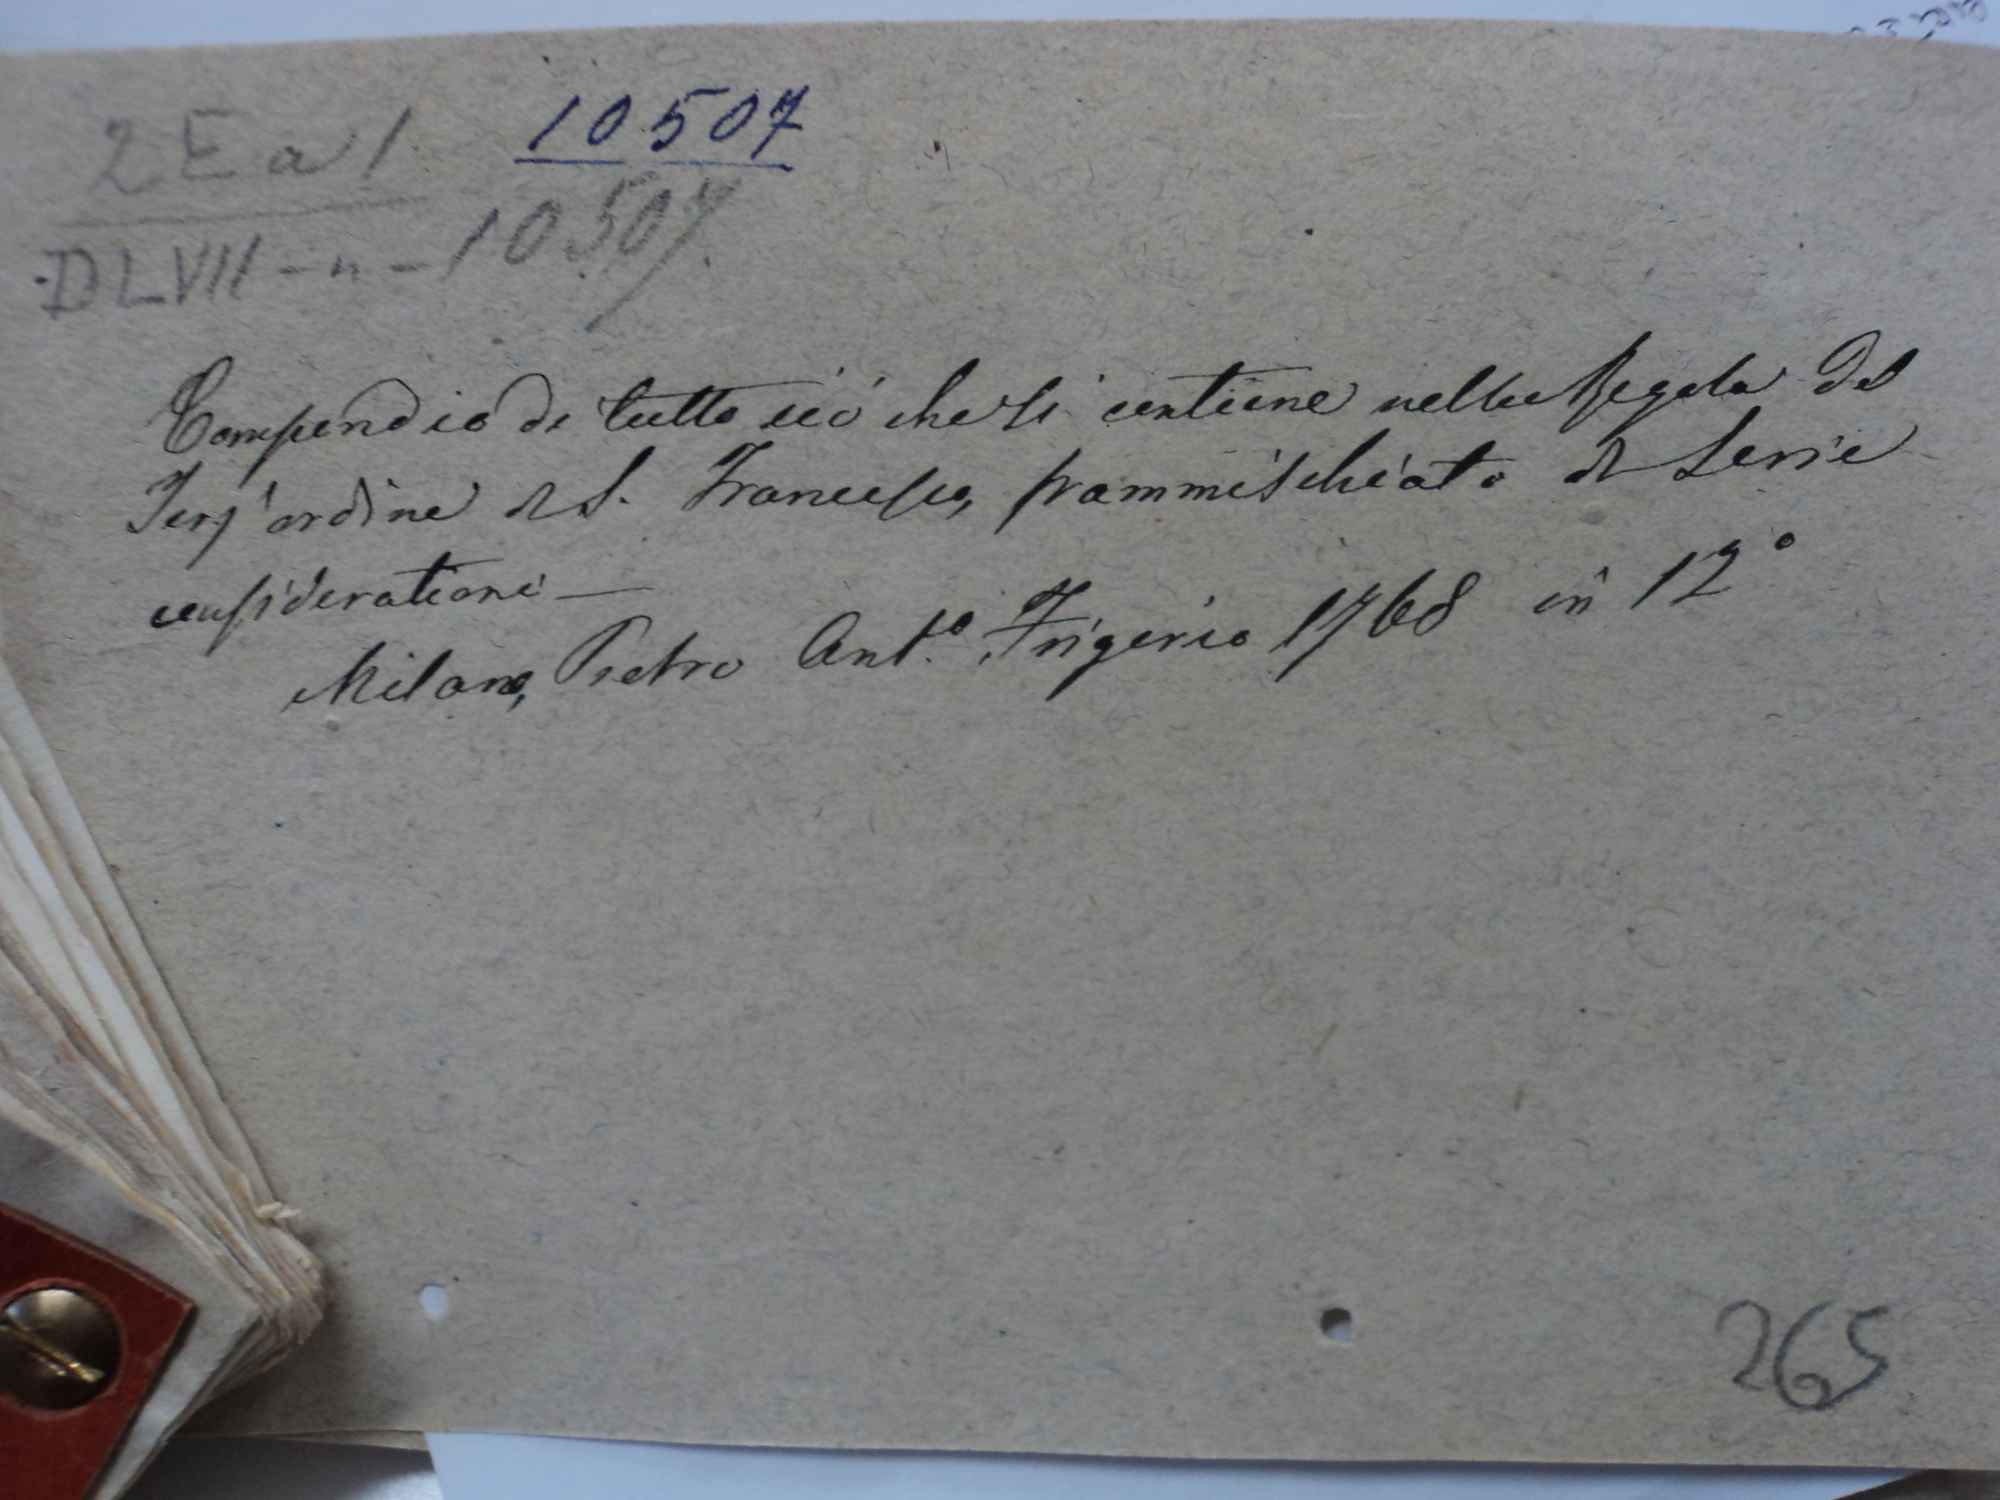 2 E a 1 10507
DLVII - n - 10507
Compendio di tutto ciò che si contiene nella Regola del
Terz'ordine di S. Francesco, frammischiato di Serie
considerationi —
Milano, Pietro Ant.o Frigerio 1768 in 12°
265